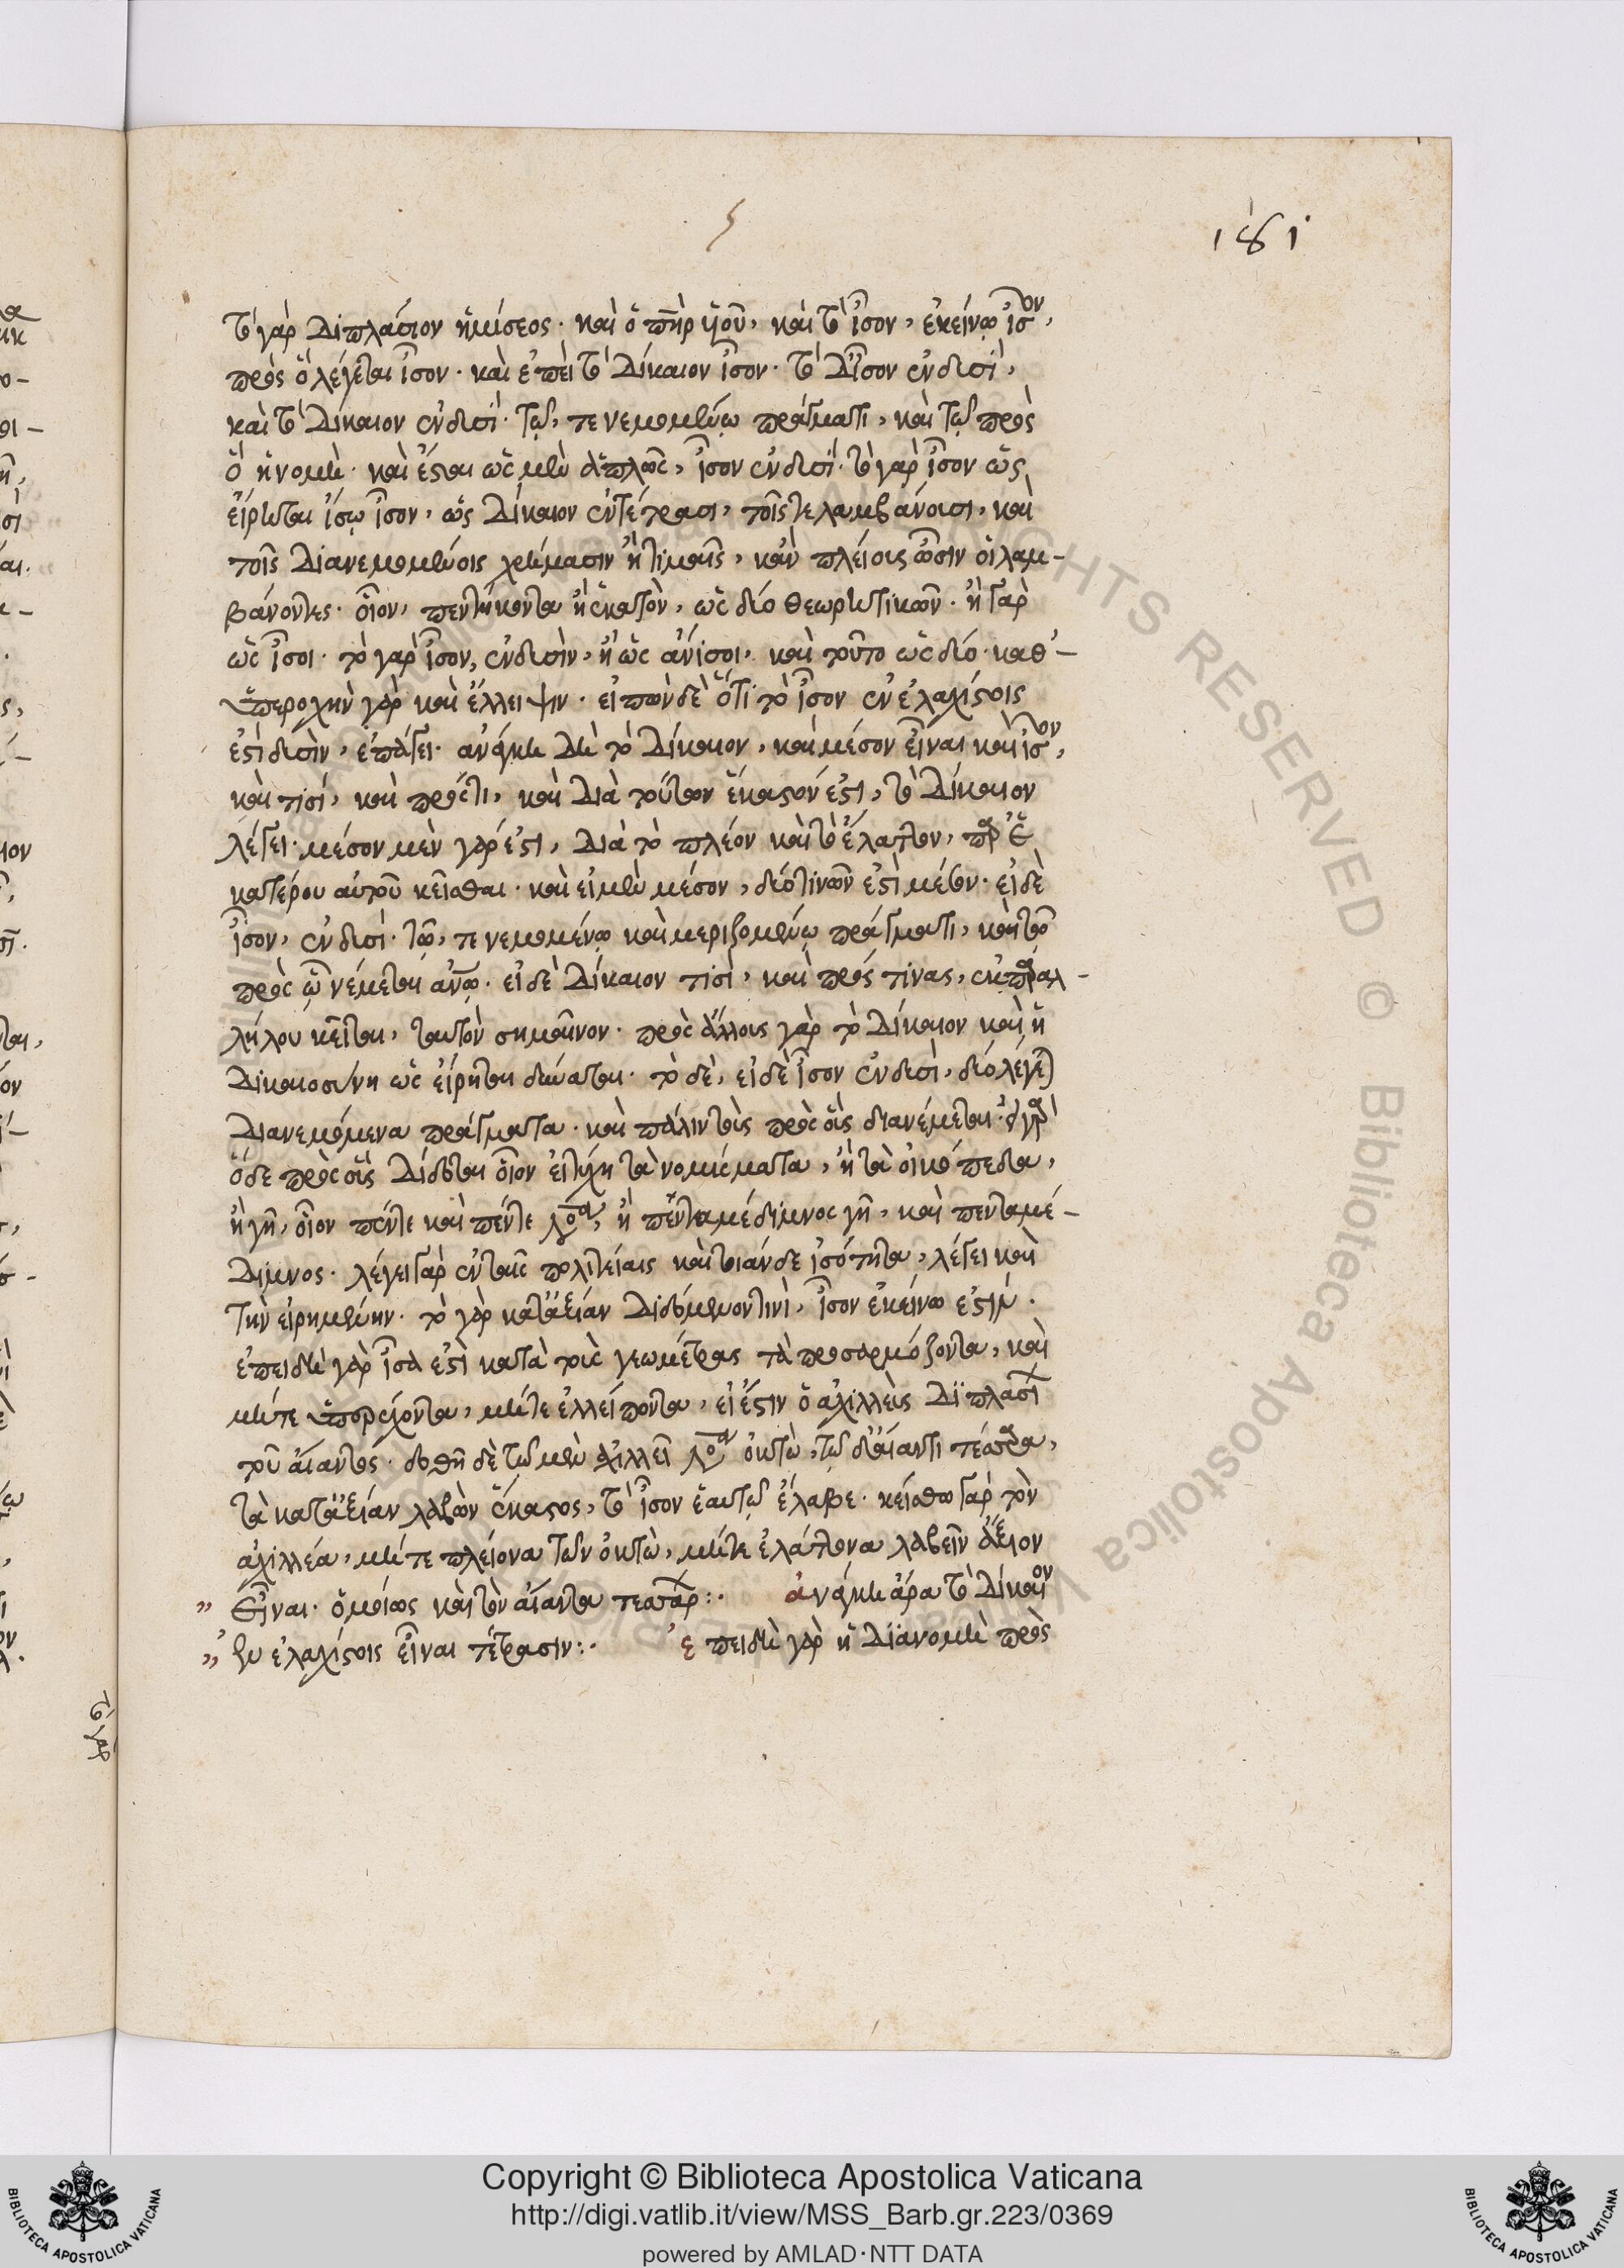 181
τὸ γὰρ διπλάσιον ἡμίσεος· καὶ ὁ πῆρ υἱοῦ, καὶ τὸ ἴσον, ἐκείνω ἴσον,
πρὸς ὃ λέγεται ἴσον· καὶ ἐπεὶ τὸ δίκαιον ἴσον· τὸ δ' ἴσον ἐν δυσὶ,
καὶ τὸ δίκαιον ἐν δυσὶ· τῶ, τε νεμομένω πράγματι, καὶ τῶ πρὸς
ὃ ἡ νομὴ· καὶ ἔσται ὡς μὲν ἁπλῶς, ἴσον ἐν δυσὶ· τὸ γὰρ ἴσον ὡς
εἴρηται ἴσω ἴσον, ὡς δίκαιον ἐν τέτρασι, τοῖς τε λαμβάνουσι, καὶ
τοῖς διανεμομένοις χρήμασιν ἢ τιμαῖς, κἂν πλείους ὦσιν οἱ λαμ-
βάνοντες· οἷον, πεντήκοντα ἢ ἑκατὸν, ὡς δύο θεωρητικῶν· ἢ γὰρ
ὡς ἴσοι· τὸ γὰρ ἴσον, ἐν δυσὶν, ἢ ὡς ἄνισοι, καὶ τοῦτο ὡς δύο· καθ'-
ὑπεροχὴν γὰρ καὶ ἔλλειψιν· εἰπὼν δὲ ὅτι τὸ ἴσον ἐν ἐλαχίστοις
ἐστὶ δυσὶν, ἐπάγει· ἀνάγκη δὴ τὸ δίκαιον, καὶ μέσον εἶναι καὶ ἴσον,
καὶ τισί, καὶ πρός τι, καὶ διὰ τούτων ἕκαστόν ἐστι, τὸ δίκαιον
λέγει· μέσον μὲν γάρ ἐστι, διὰ τὸ πλέον καὶ τὸ ἔλαττον, παρ' ἑ
κατέρου αὐτοῦ κεῖσθαι· καὶ εἰ μὲν μέσον, δύο τινῶν ἐστὶ μέσον· εἰ δὲ
ἴσον, ἐν δυσὶ· τῶ, τε νεμομένω καὶ μεριζομένω πράγματι, καὶ τῶ
πρὸς ὧ νέμεται ἀνῶ· εἰ δὲ δίκαιον τισὶ, καὶ πρός τινας, ἐκ παραλ-
λήλου κεῖται, ταυτὸν σημαῖνον· πρὸς ἄλλους γὰρ τὸ δίκαιον καὶ ἡ
δικαιοσύνη ὡς εἴρηται δύναται· τὸ δὲ, εἰ δὲ ἴσον ἐν δυσὶ, δύο λέγει
διανεμόμενα πράγματα· καὶ πάλιν τοῖς πρὸς οἷς διανέμεται·
ὅδε πρὸς οἷς δίδοται οἷον εἰ τύχη τὰ νομίσματα, ἢ τὰ οἰκόπεδα,
ἢ γῆ, οἷον πέντε καὶ πέντε, ἢ πενταμέδιμνος γῆ, καὶ πενταμέ-
διμνος· λέγει γὰρ ἐν ταῖς πολιτείαις καὶ τοιάνδε ἰσότητα, λέγει καὶ
τὴν εἰρημένην· τὸ γὰρ κατ' ἀξίαν διδόμενον τινὶ, ἴσον ἐκείνω ἐστίν.
ἐπειδὴ γὰρ ἴσα ἐστὶ κατὰ τοὺς γεωμέτρας τὰ προσαρμόζοντα, καὶ
μήτε ὑπερέχοντα, μήτε ἐλλείποντα, εἰ ἔστιν ὁ ἀχιλλεὺς διπλασι
τοῦ αἴαντος· δοθῆ δὲ τῶ μὲν ἀχιλλεῖ ὀκτὼ, τῶ δ' αἴαντι τέσσαρα,
τὰ κατ' ἀξίαν λαβὼν ἕκαστος, τὸ ἴσον ἑαυτῶ ἔλαβε· κείσθω γὰρ τὸν
ἀχιλλέα, μήτε πλείονα τῶν ὀκτὼ, μήτε ἐλάττονα λαβεῖν ἄξιον
εἶναι· ὁμοίως καὶ τὸν αἴαντα τεσσάρ:· ἀνάγκη ἄρα τὸ δίκαιον
ἐν ἐλαχίστοις εἶναι τέτρασιν:· ἐπειδὴ γὰρ ἡ διανομὴ πρὸς
τὸ γὰρ
Copyright © Biblioteca Apostolica Vaticana
http://digi.vatlib.it/view/MSS_Barb.gr.223/0369
powered by AMLAD·NTT DATA